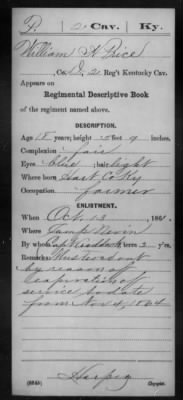 P. | 2 Cav. | Ky.
William A Price
, Co. D, 2 Reg't Kentucky Cav.
Appears on
Regimental Descriptive Book
of the regiment named above.
DESCRIPTION.
Age 18 years; height 5 feet 9 inches.
Complexion fair
Eyes Blue; hair light
Where born Hart Co Ky
Occupation farmer
ENLISTMENT.
When Oct 13, 1861.
Where Camp Nevin
By whom Cap; term 3 y'rs.
Remarks: Mustered out
by reason of
Expiration of
service to date
from Nov 4, 1864
Copyist.